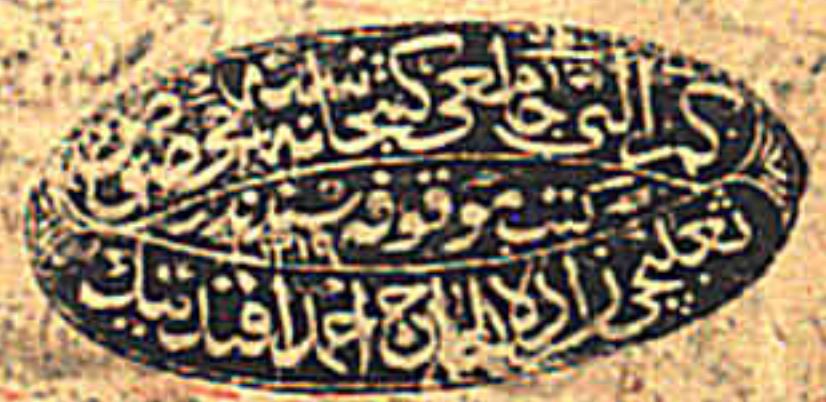 كمر التى جامعى كتبخانه سنه مخصوص
كتب موقوفه سندندر
ثعلبچى زاده الحاج احمد افندينك